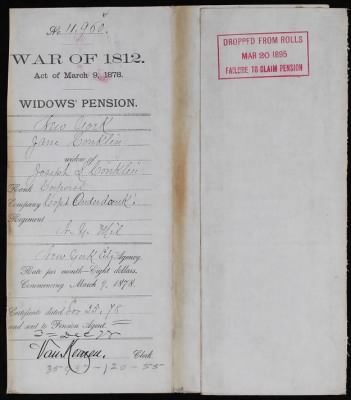 No. 11,960.
WAR OF 1812.
Act of March 9, 1878.
WIDOWS' PENSION.
New York
Jane Conklin
widow of
Joseph L Conklin
Rank Corporal
Company Capt Onderdonk's
Regiment
N. Y. Mil
New York City Agency.
Rate per month—Eight dollars,
Commencing March 9, 1878.
Certificate dated 25, 78
and sent to Pension Agent
Clerk.
DROPPED FROM ROLLS
MAR 20 1895
FAILURE TO CLAIM PENSION